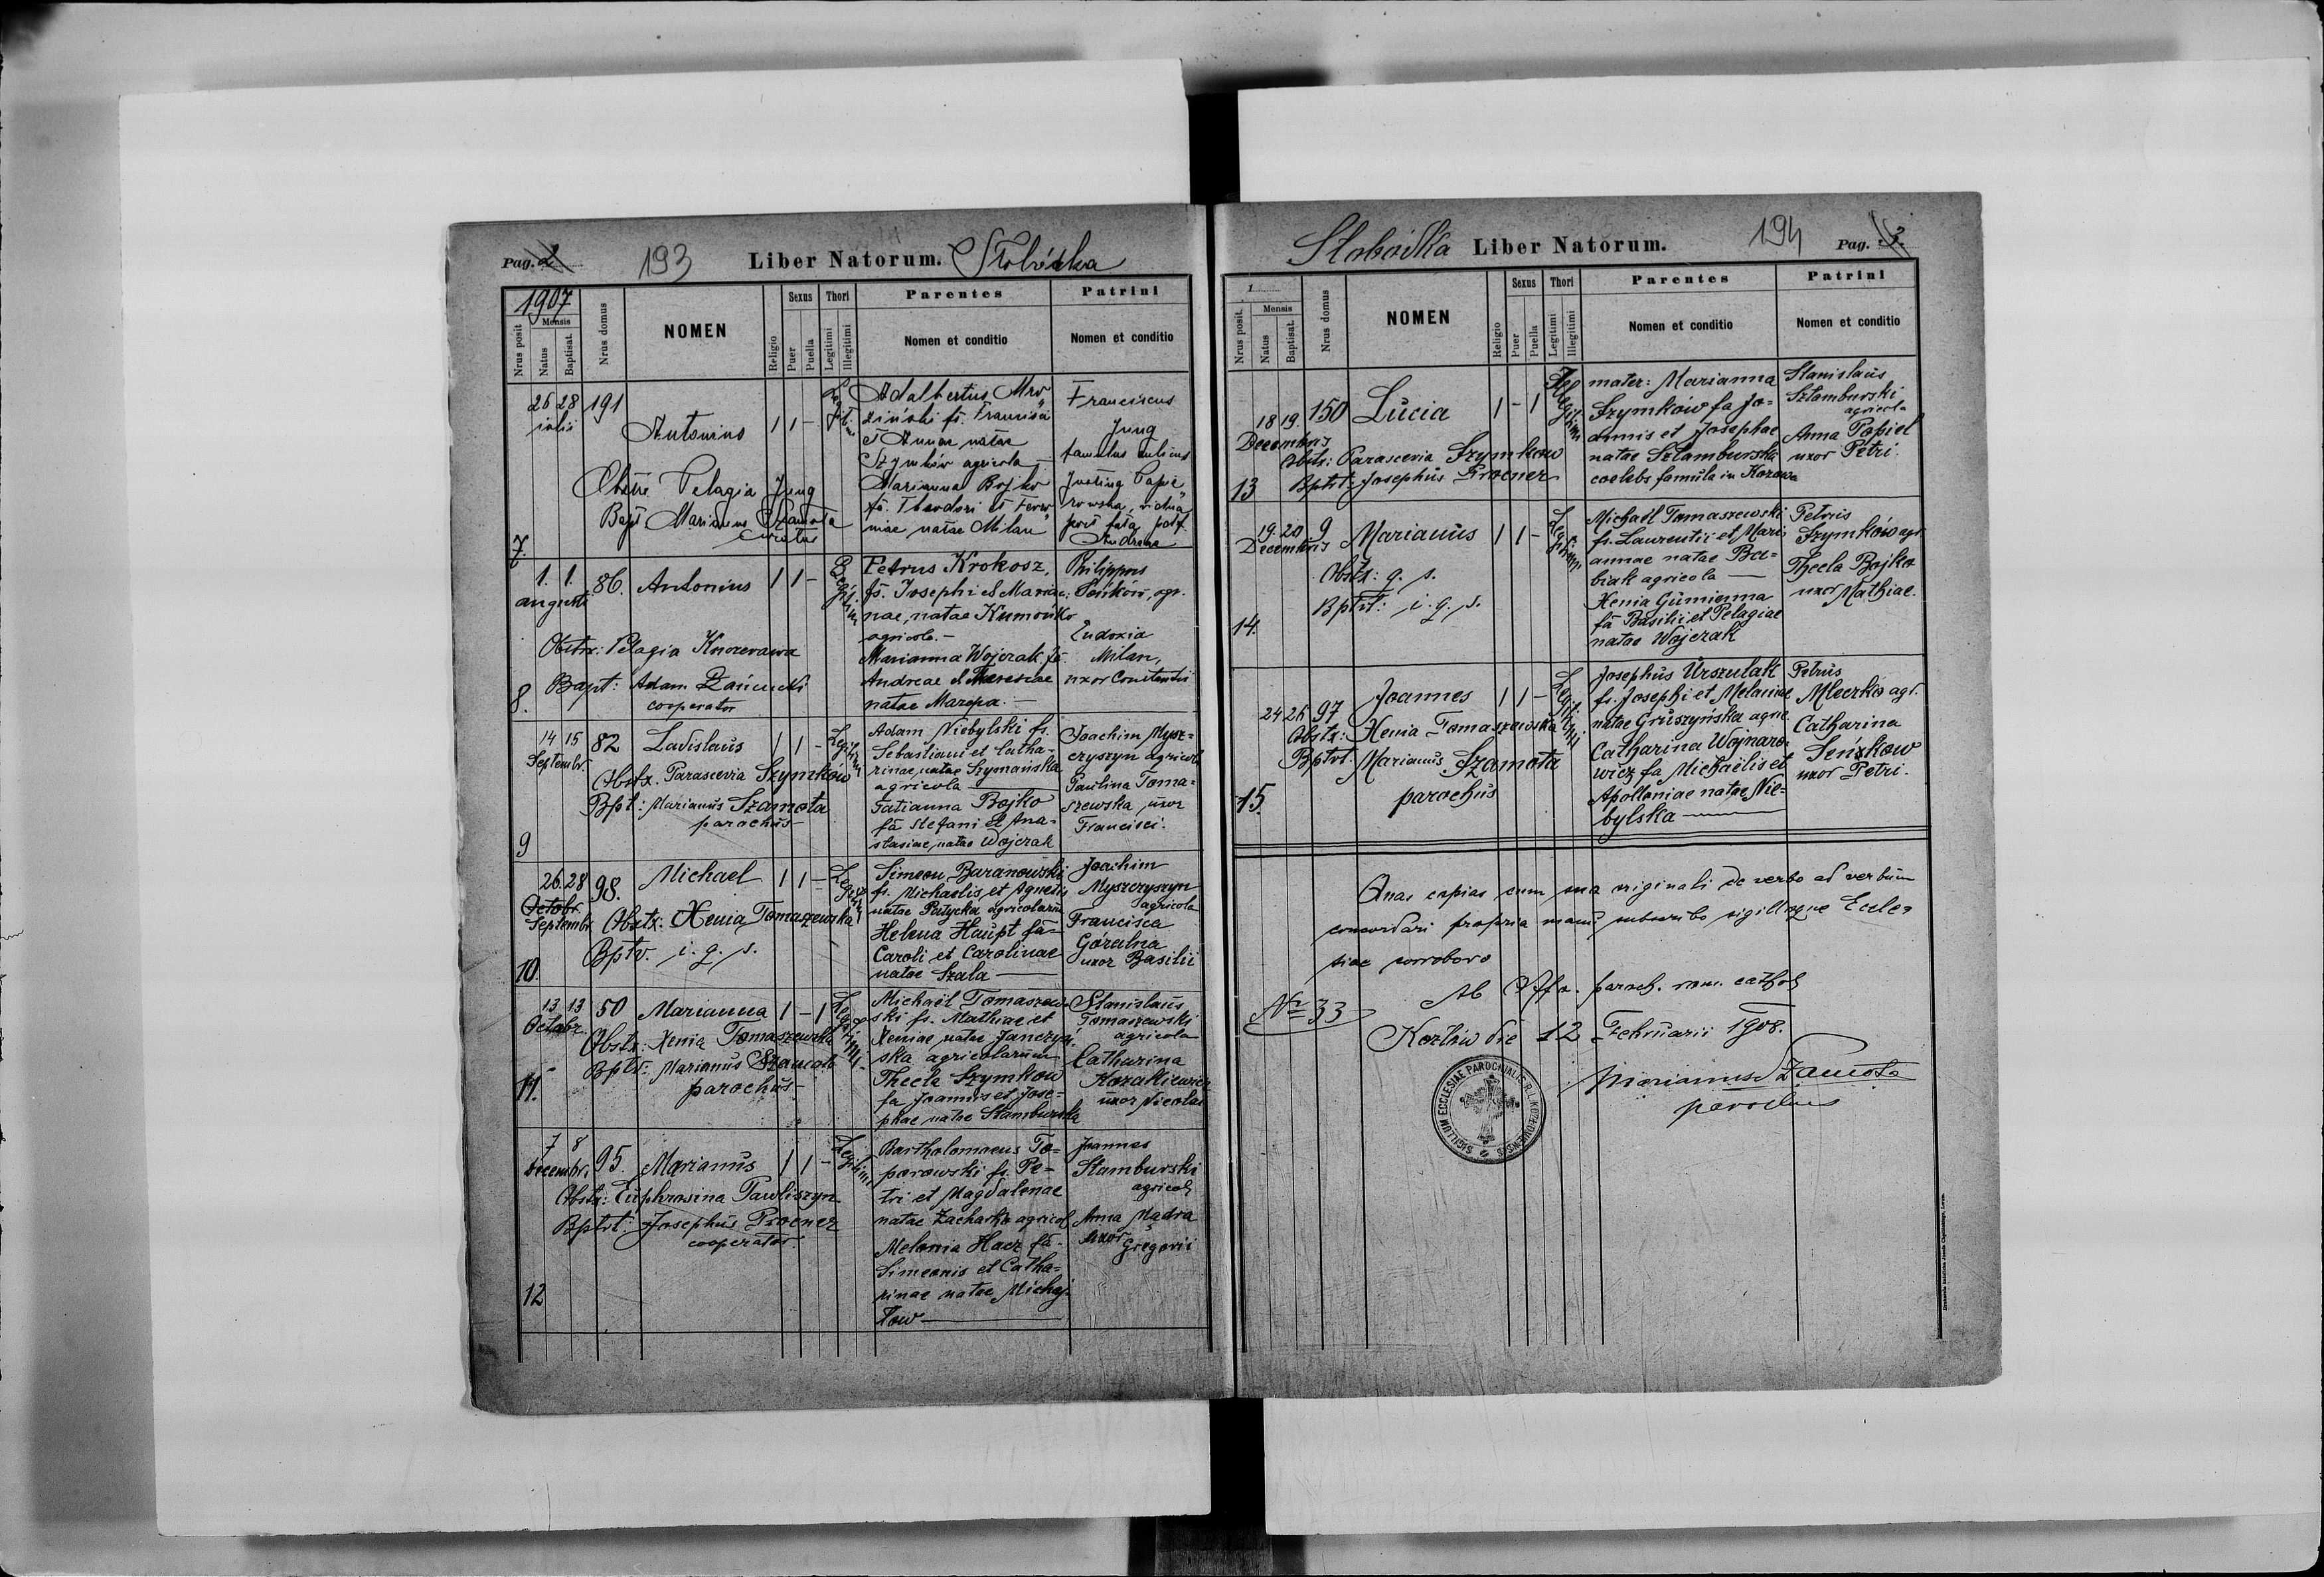 Pag. 2
193
Liber Natorum. Słobódka
1907
Nrus posit
Mensis
Natus
Baptisat.
Nrus domus
NOMEN
Religio
Sexus
Puer
Puella
Thori
Legitimi
Illegitimi
Parentes
Nomen et conditio
Patrini
Nomen et conditio
7.
26 28 191
julii
Antonius 1 1 -
Obstre. Pelagia Jung
Bapt. Marianus Szamota
curatus
Adalbertus Mro
ziński fs. Francisci
et Annae natae
Szymków agricola
Marianna Bojko
fa. Theodori et
niae natae Milan
Franciscus
Jung
famulus
Justina
vidua
post
8.
1. 1. 86. Antonius 1 1 -
augusti
Legitim
Obstr: Pelagia
Bapt: Adam Łańcucki
cooperator
Petrus Krokosz,
fs. Josephi et Marian
nae, natae
agricola. -
Marianna Wojczak fa.
Andreae et Theresiae
natae Mazepa. -
Philippus
Seńków, agr.
Eudoxia
Milan,
uxor Constantii
9
14 15 82 Ladislaus 1 1 - Legitimi
Septembr.
Obstx. Parascevia Szymków
Bpt: Marianus Szamota
parochus
Adam Niebylski fs.
Sebastiani et Catha-
rinae, natae Szymańska
agricola
Tatianna Bojko
fa Stefani et Ana-
stasiae, natae Wojczak
Joachim Mysz=
czyszyn agricola
Paulina Toma=
szewska uxor
Francisci.
10.
26. 28 98. Michael 1 1 - Legitimi
Octobr.
Septembr. Obstx: Xenia Tomaszewska
Bptv. i. q. s.
Simeon Baranowski
fs. Michaelis et Agnetis
natae Patycka agricolarum
Helena Haupt fa
Caroli et Carolinae
natae Szala
Joachim
Myszczyszyn
agricola
Francisca
Góralna
uxor Basilii
11.
13 13 50 Marianna 1 - 1 Legitimi
Octobr.
Obstx: Xenia Tomaszewska
Bptv: Marianus Szamota
parochus
Michael Tomaszew
ski fs. Mathiae et
Xeniae natae Janczyń
ska agricolarum
Thecla Szymkow
fa Joannis et Jose=
phae natae Stamburska
Stanislaus
Tomaszewski
agricola
Catharina
Kozakiewicz
uxor Nicolai
12
7 8 95. Marianus 1 1 - Legitimi
Decembr.
Obstx: Euphrosina Pawliszyn
Bptvt: Josephus Procner
cooperator.
Bartholomaeus To=
porowski fs. Pe-
tri et Magdalenae
natae Zacharko agricol
Melania Hacz fa.
Simeonis et Catha=
rinae natae Michaj
łow
Joannes
Stamburski
agricol
Anna Mądra
uxor Gregorii
Słobódka Liber Natorum.
194
Pag. 3.
1
Nrus posit.
Mensis
Natus
Baptisat.
Nrus domus
NOMEN
Religio
Sexus
Puer
Puella
Thori
Legitimi
Illegitimi
Parentes
Nomen et conditio
Patrini
Nomen et conditio
13
18 19. 150 Lucia 1 - 1
Decembris
Obstx: Parascevia Szymkow
Bptvt: Josephus Procner
mater: Marianna
Szymków fa Jo=
annis et Josephae
natae Sztamburska
coelebs famula in Kozowa
Stanislaus
Sztamburski
agricola
Anna Popiel
uxor Petri.
14.
19. 20 9 Marianus 1 1 - Legitimi
Decembris
Obstx: q. s.
Bptvt: i. q. s.
Michael Tomaszewski
fs. Laurentii et Mari
annae natae Ba=
biak agricola
Xenia Gumienna
fa Basilii et Pelagiae
natae Wojczak
Petrus
Szymków agr.
Thecla Bojko
uxor Mathiae.
15.
24 26 97 Joannes 1 1 - Legitimi
Obstx: Xenia Tomaszewska
Bptvt. Marianus Szamota
parochus
Josephus Urszulak
fs. Josephi et Melaniae
natae Gruszyńska agric.
Catharina Wojnaro-
wicz fa Michaelis et
Apolloniae natae Nie=
bylska
Petrus
Mleczko agr.
Catharina
Seńkow
uxor Petri.
Quas copias cum sua originali de verbo ad verbum
concordari propria manu subscribo sigilloque Eccle=
siae corroboro
Nr 33
Ab Offo. paroch. rom. cathol
Kozłów die 12 Februarii 1908.
SIGILLUM ECCLESIAE PAROCHIALIS R. L. KOZŁOWIENSIS
Marianus Szamota
parochus